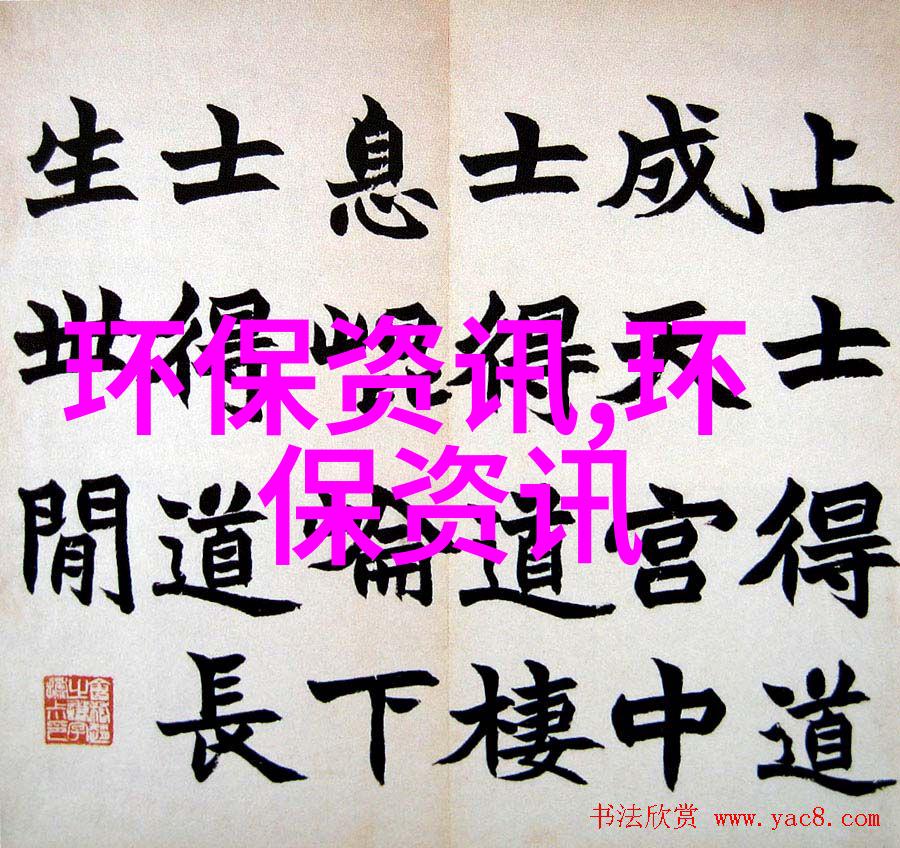 上士得道
成天宫中
士得道棲
息崐崘下
士得道長
生世間
环保资讯,环
保资讯
书法欣赏 www.yac8.com